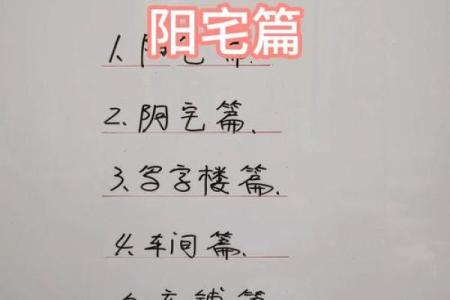 阳宅篇
1、阳宅篇.
2、阴宅篇.
3、写字楼篇.
4、车间篇.